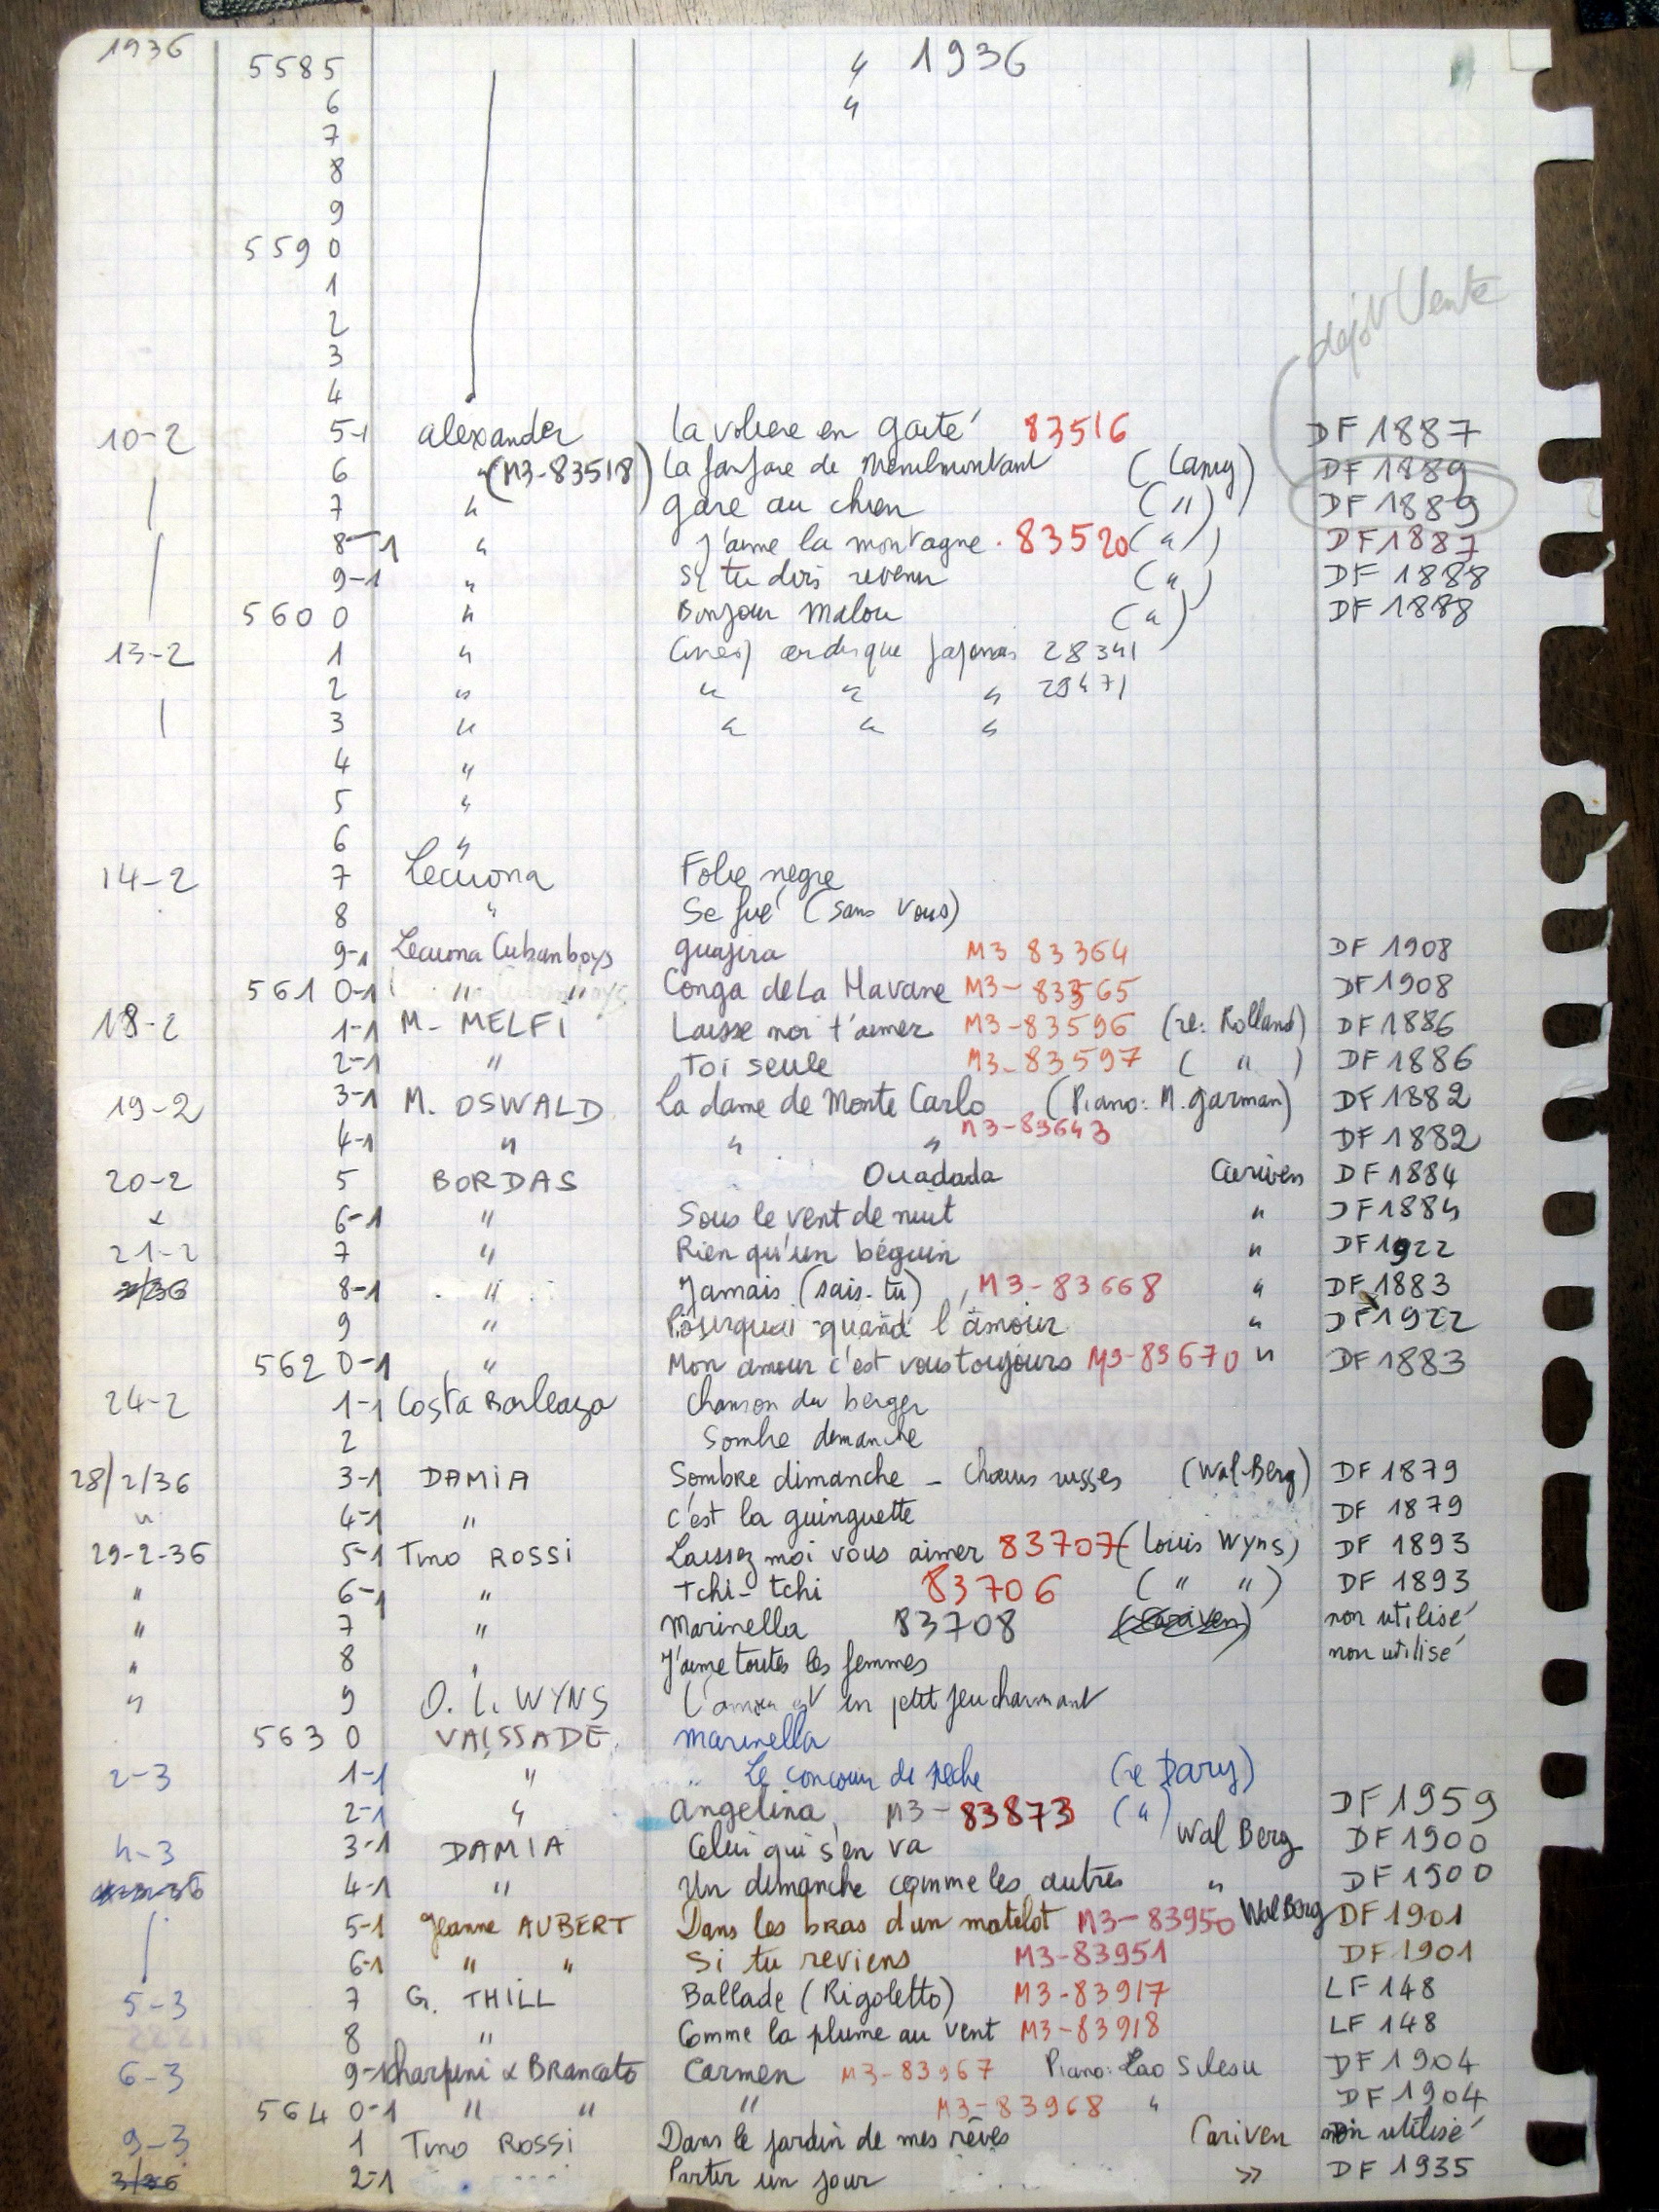 1936 5585 " 1936
6 "
7
8
9
559 0
1
2
3
déjà Vente
4
10-2 5-1 alexander la voliere en gaité 83516 DF 1887
6 " (M3-83518) la fanfare de Menilmontant (Lamy) DF 1889
7 " gare au chien (") DF 1889
8-1 " J'aime la montagne. 83520 (") DF 1887
9-1 " Si tu dois revenir (") DF 1888
560 0 " Bonjour Malou (") DF 1888
13-2 1 " 28341
2 " " " " 29471
3 " " " "
4 "
5 "
6 "
14-2 7 Lecuona Folie negre
8 " Se fué (sans vous)
9-1 Lecuona Cuban boys guajira M3 83364 DF 1908
561 0-1 " " Conga de La Havane M3-83365 DF 1908
18-2 1-1 M. MELFI Laisse moi t'aimer M3-83596 (re: Rolland) DF 1886
2-1 " Toi seule M3-83597 ( " ) DF 1886
19-2 3-1 M. OSWALD La dame de Monte Carlo (Piano: M. Jarman) DF 1882
4-1 " " " M3-83643 DF 1882
20-2 5 BORDAS Ouadada Cariven DF 1884
" 6-1 " Sous le vent de nuit " DF 1884
21-2 7 " Rien qu'un béguin " DF 1922
2/36 8-1 " Jamais (sais-tu) M3-83668 " DF 1883
9 " Pourquoi quand l'amour " DF 1922
562 0-1 " Mon amour c'est vous toujours M3-83670 " DF 1883
24-2 1-1 Costa Chanson du berger
2 Sombre dimanche
28/2/36 3-1 DAMIA Sombre dimanche - Choeurs russes (Wal-Berg) DF 1879
" 4-1 " c'est la guinguette DF 1879
29-2-36 5-1 Tino ROSSI Laissez moi vous aimer 83707 (Louis Wyns) DF 1893
" 6-1 " Tchi-tchi 83706 ( " " ) DF 1893
" 7 " Marinella 83708 (Cariven) non utilisé
" 8 " J'aime toutes les femmes non utilisé
" 9 O. L. WYNS L'amour est un petit jeu charmant
563 0 VAISSADE marinella
2-3 1-1 " Le concour de peche (re Dary)
2-1 " Angelina M3-83873 (") DF 1959
4-3 3-1 DAMIA Celui qui s'en va Wal Berg DF 1900
4-1 " Un dimanche comme les autres " DF 1900
5-1 Jeanne AUBERT Dans les bras d'un matelot M3-83950 Wal Berg DF 1901
6-1 " " Si tu reviens M3-83951 DF 1901
5-3 7 G. THILL Ballade (Rigoletto) M3-83917 LF 148
8 " Comme la plume au vent M3-83918 LF 148
6-3 9-1 Charpini & Brancato Carmen M3-83967 Piano: Lao Silesu DF 1904
564 0-1 " " " M3-83968 " DF 1904
9-3 1 Tino ROSSI Dans le jardin de mes rêves Cariven non utilisé
3/36 2-1 Partir un jour " DF 1935